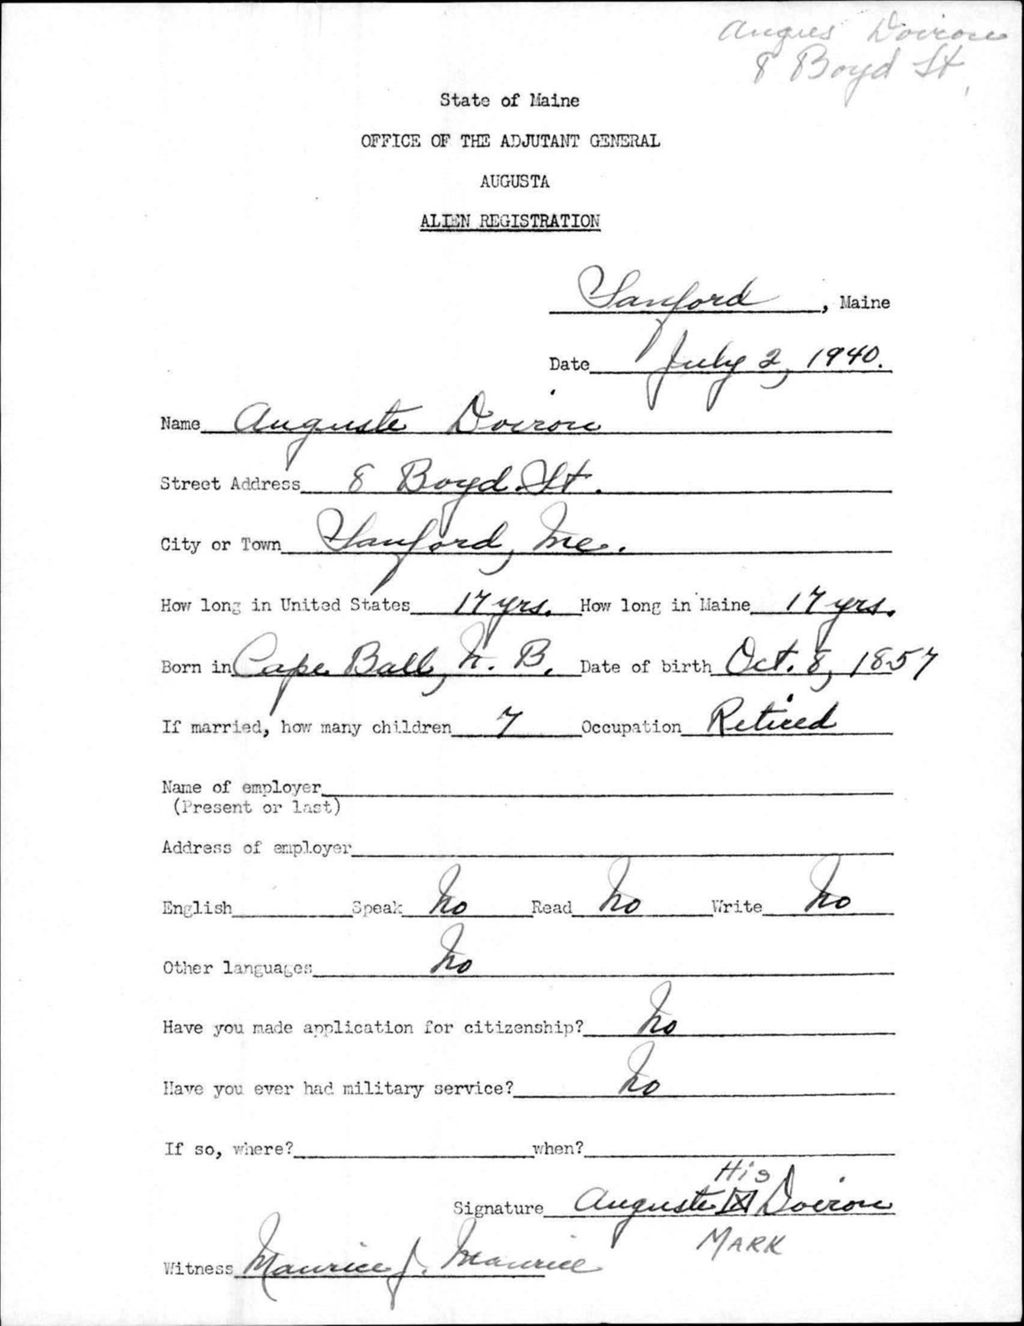 Angus Doiron
8 Boyd St.
State of Maine
OFFICE OF THE ADJUTANT GENERAL
AUGUSTA
ALIEN REGISTRATION
Sanford, Maine
Date July 2, 1940.
Name Auguste Doiron
Street Address 8 Boyd St.
City or Town Sanford, Me.
How long in United States 17 yrs. How long in Maine 17 yrs.
Born in Cape Ball, N. B. Date of birth Oct. 8, 1857
If married, how many children 7 Occupation Retired
Name of employer
(Present or last)
Address of employer
English Speak No Read No Write No
Other languages No
Have you made application for citizenship? No
Have you ever had military service? No
If so, where? when?
His
Signature Auguste X Doiron
MARK
Witness Maurice J. Maurice